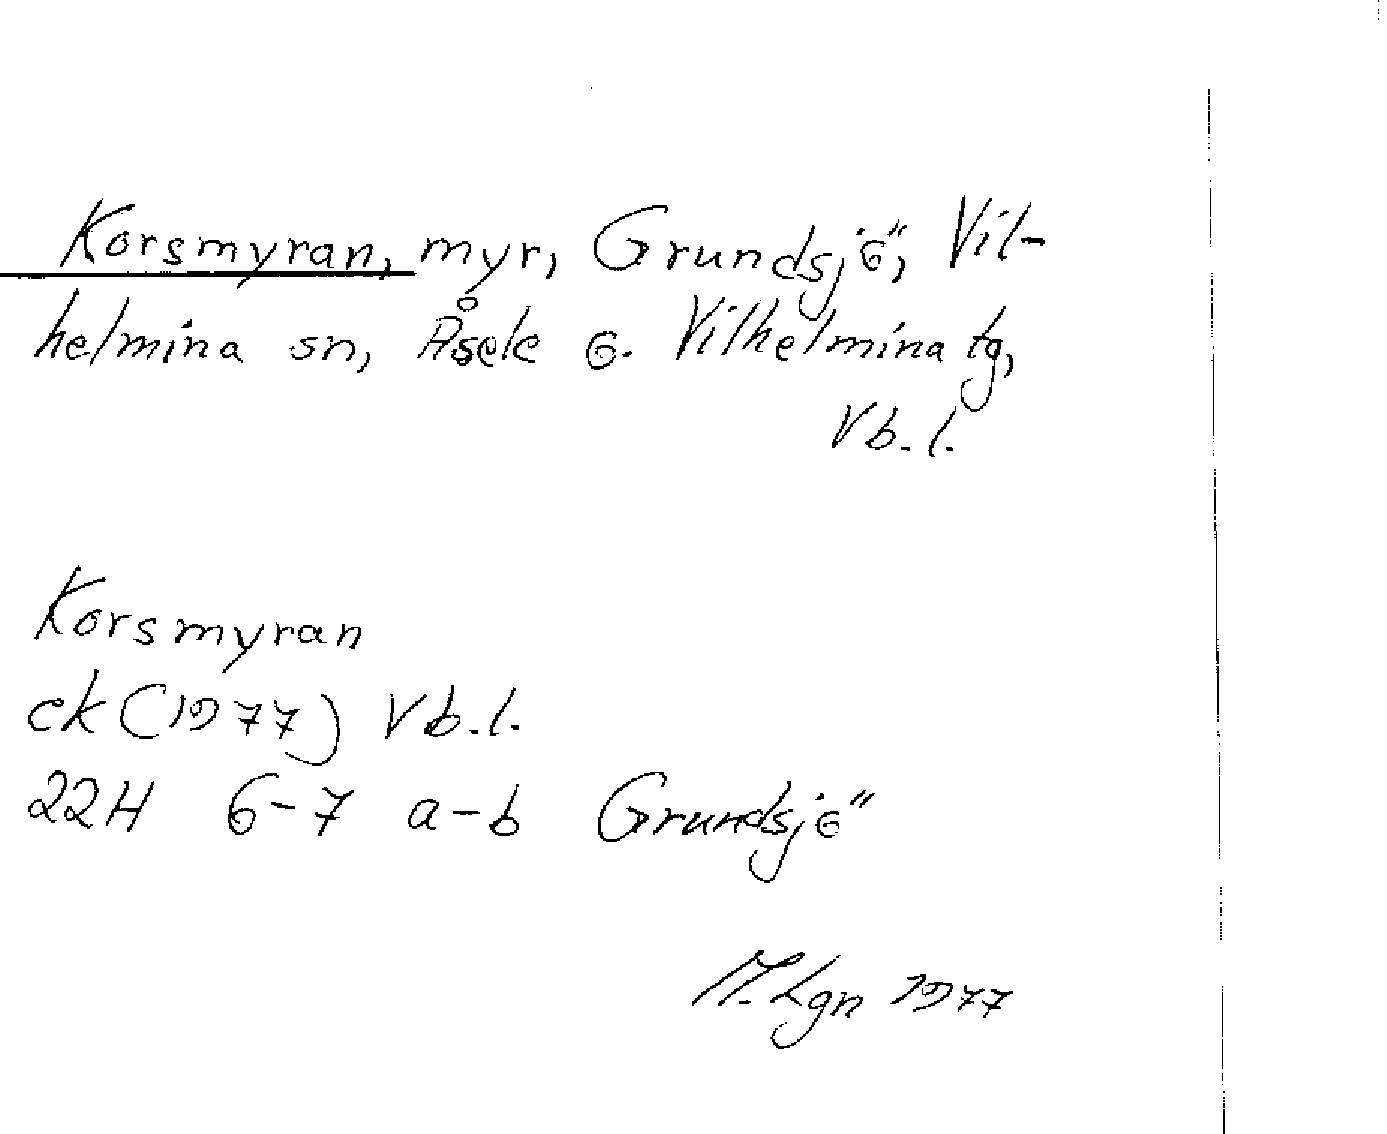 Korsmyran, myr, Grundsjö, Vil-
helmina sn, Åsele o. Vilhelmina tg,
Vb. l.
Korsmyran
ek (1977) Vb. l.
22H 6-7 a-b Grundsjö
M. Lgn 1977